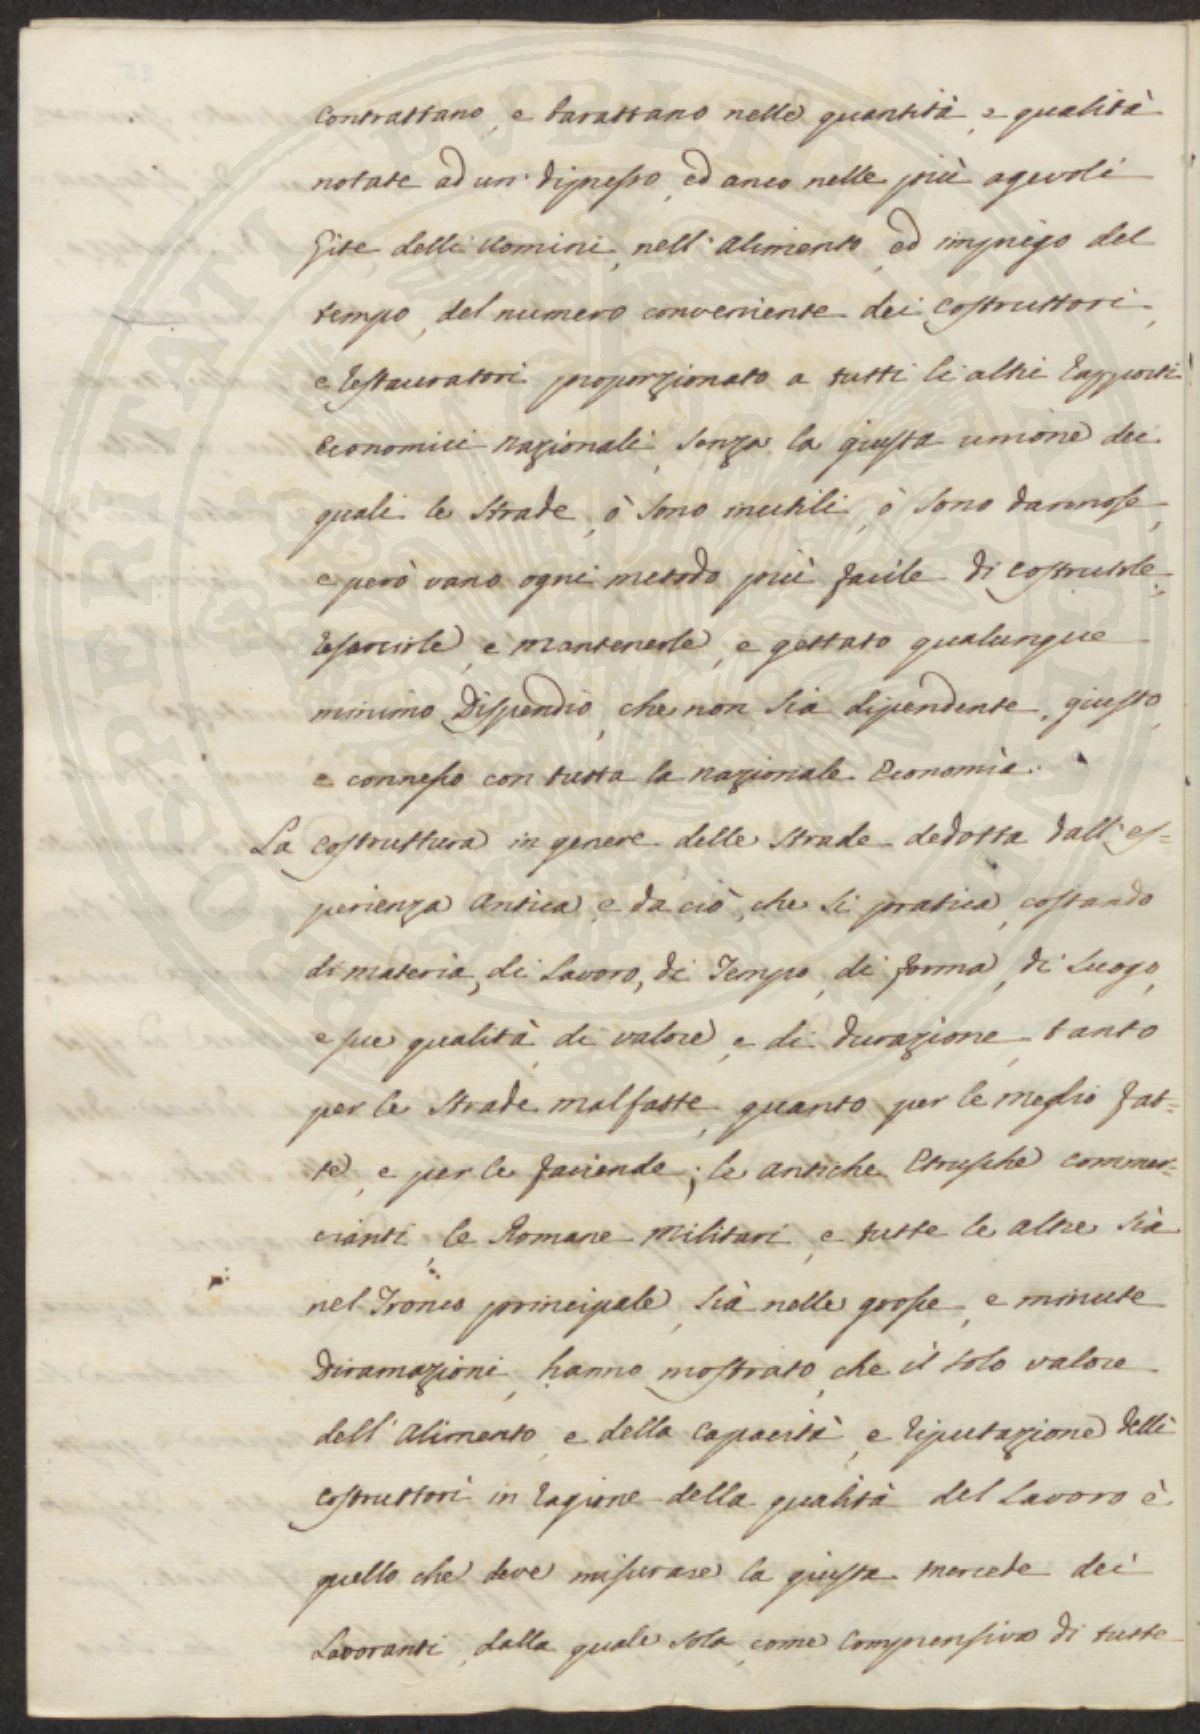 contrattano, e barattano nelle quantità, e qualità
notate ad un dipresso, ed anco nelle più agevoli
Gite delli Uomini, nell'alimento, ed impiego del
tempo, del numero conveniente dei Costruttori,
e restauratori proporzionato a tutti li altri rapporti
economici nazionali, senza la giusta unione dei
quali le Strade, ò sono inutili, ò sono dannose,
e però vano ogni metodo più facile di costruirle,
resarcirle, e mantenerle, e gettato qualunque
minimo Dispendio, che non sia dipendente, giusto,
e connesso con tutta la nazionale Economìa.
La costruttura in genere delle Strade dedotta dall'es=
perienza Antica, e da ciò, che si pratica, costando
di materia, di Lavoro, di Tempo, di forma, di Luogo,
e sue qualità, di valore, e di durazione, tanto
per le Strade malfatte, quanto per le meglio fat=
te, e per le faciende; le antiche Etrusche commer=
cianti, le Romane Militari, e tutte le altre sia
nel Tronco principale, sia nelle grosse, e minute
Diramazioni, hanno mostrato, che il solo valore
dell'Alimento, e della Capacità, e riputazione delli
Costruttori in ragione della qualità del Lavoro è
quello che deve misurare la giusta mercede dei
Lavoranti, dalla quale sola, come comprensiva di tutte
PROSPERITATI PUBLICAE AUGENDAE